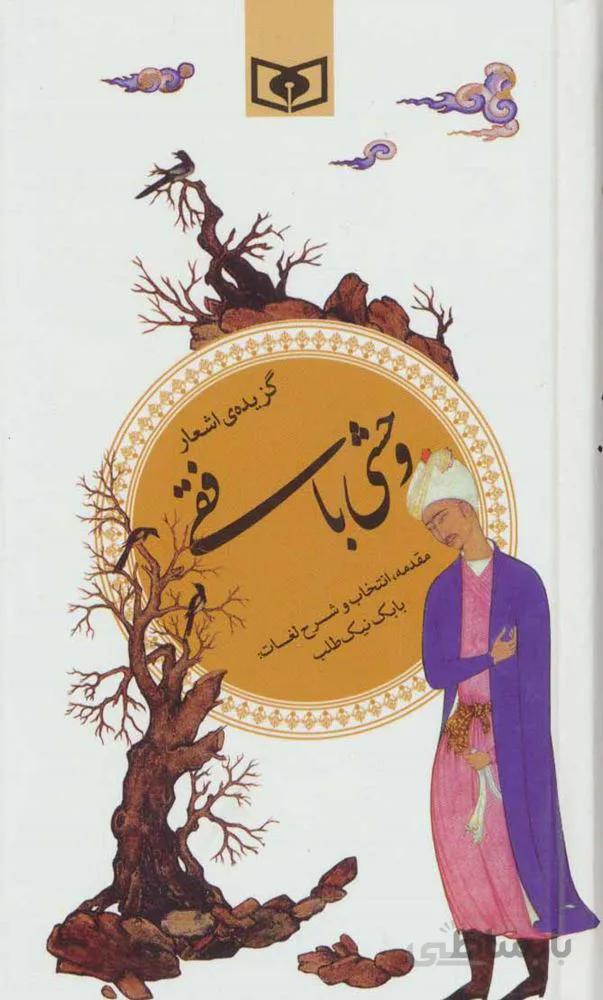 گزیده‌ی اشعار
وحشی بافقی
مقدمه، انتخاب و شرح لغات:
بابک نیک‌طلب